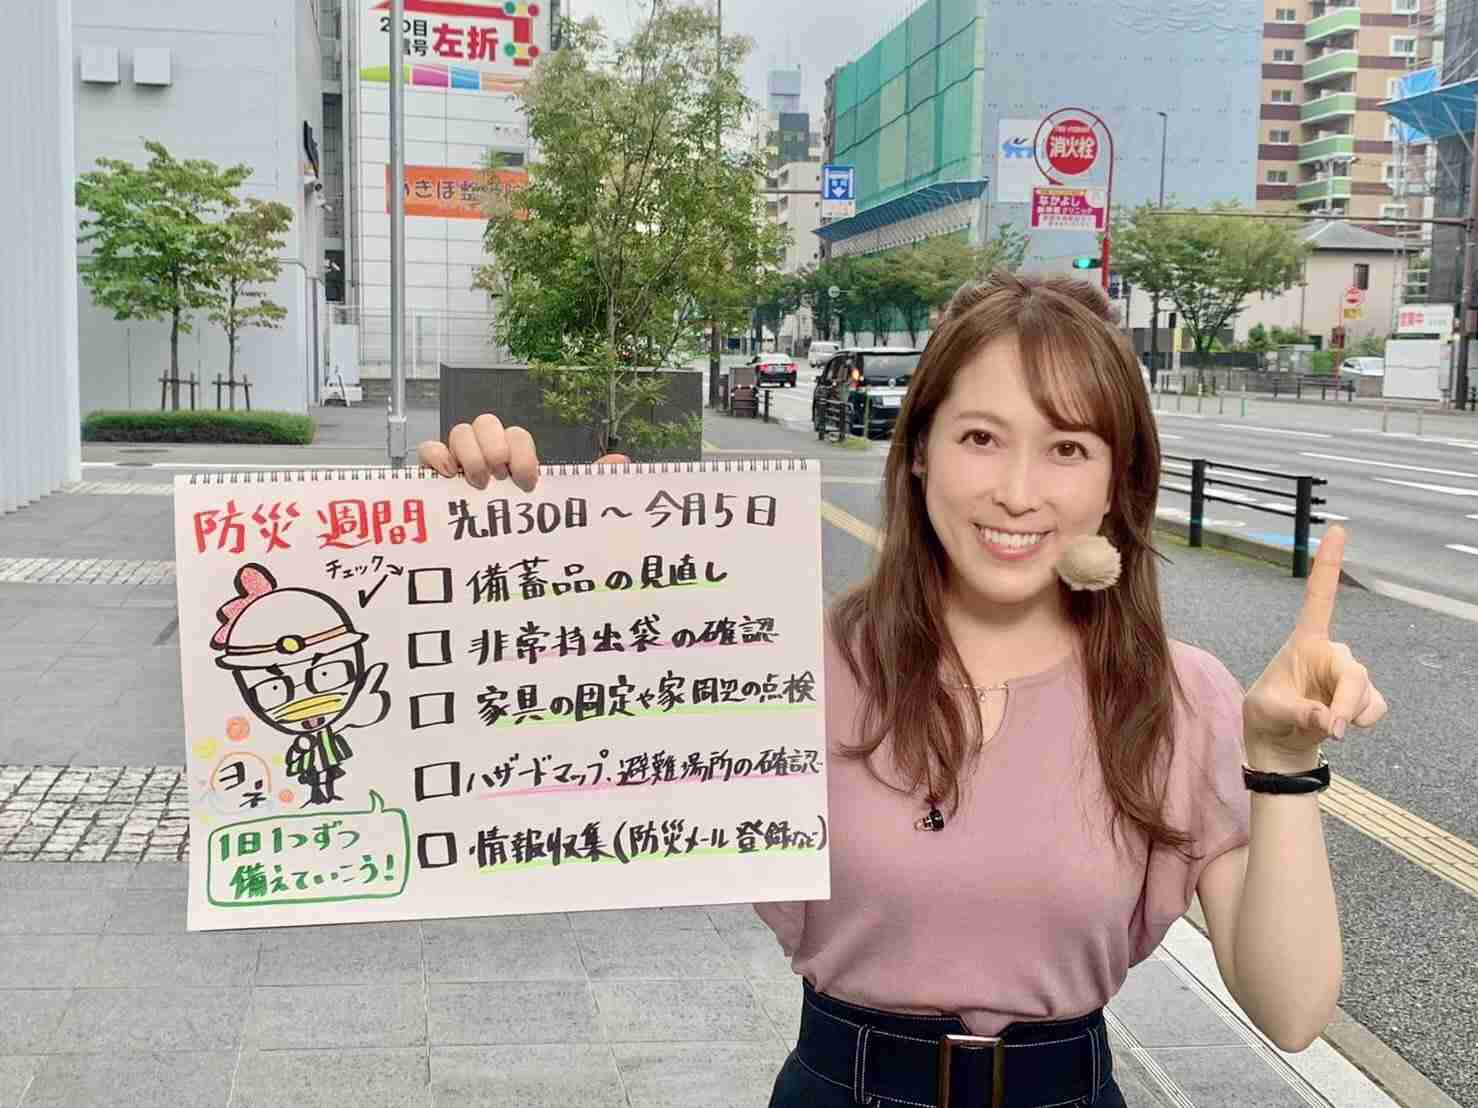 2つ目
信号 左折
消火栓
なかよし
営業中
防災週間 先月30日〜今月5日
チェック
備蓄品の見直し
非常持出袋の確認
家具の固定や家周辺の点検
ハザードマップ、避難場所の確認
情報収集(防災メール登録など)
ヨネ
1日1つずつ
備えていこう!